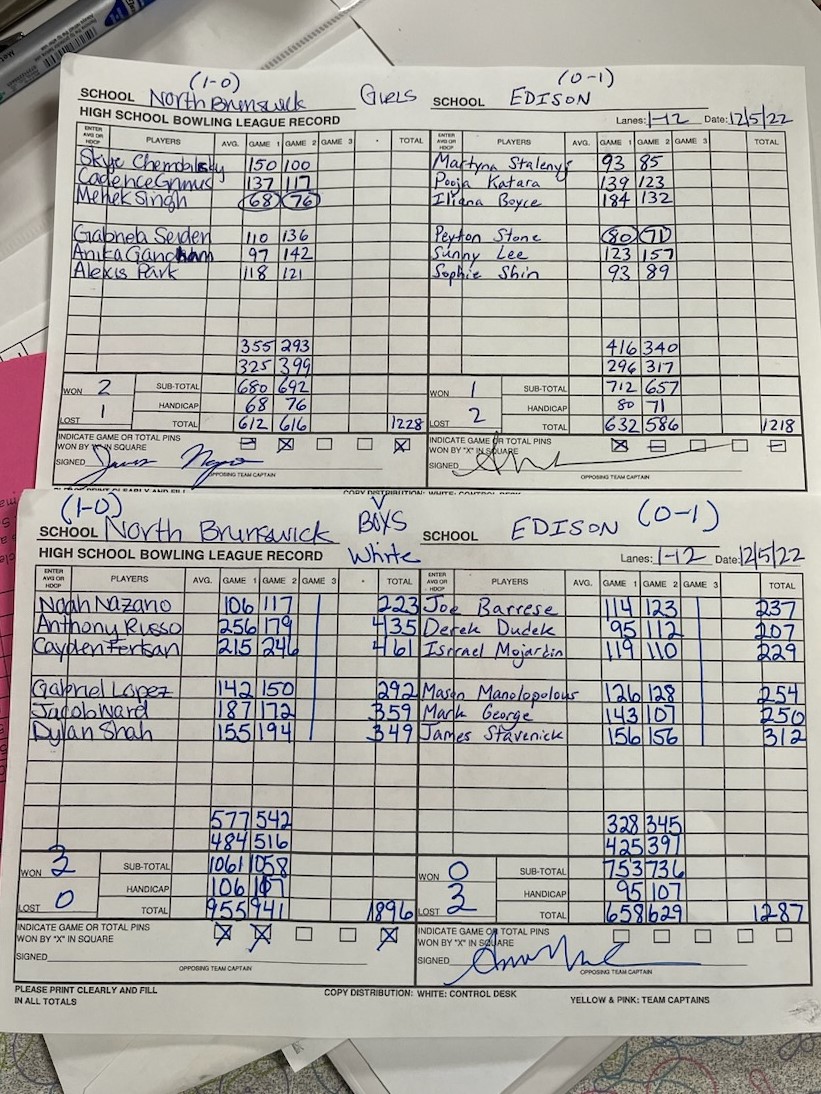 (1-0) (0-1)
SCHOOL North Brunswick GIRLS SCHOOL EDISON
HIGH SCHOOL BOWLING LEAGUE RECORD Lanes: 1-12 Date: 12/5/22
ENTER AVG OR HDCP PLAYERS AVG. GAME 1 GAME 2 GAME 3 TOTAL ENTER AVG OR HDCP PLAYERS AVG. GAME 1 GAME 2 GAME 3 TOTAL
Skye 150 100 Martyna 93 85
Cadence 137 117 Pooja Katara 139 123
Mehek Singh 68 76 Iliana Boyce 184 132
Gabriela Seiden 110 136 Peyton Stone 80 71
Anika 97 142 Sunny Lee 123 157
Alexis Park 118 121 Sophie Shin 93 89
355 293 416 340
325 399 296 317
WON 2 SUB-TOTAL 680 692 WON 1 SUB-TOTAL 712 657
1 HANDICAP 68 76 2 HANDICAP 80 71
LOST TOTAL 612 616 1228 LOST TOTAL 632 586 1218
INDICATE GAME OR TOTAL PINS INDICATE GAME OR TOTAL PINS
WON BY "X" IN SQUARE WON BY "X" IN SQUARE
SIGNED SIGNED
OPPOSING TEAM CAPTAIN OPPOSING TEAM CAPTAIN
(1-0) (0-1)
SCHOOL North Brunswick BOYS SCHOOL EDISON
HIGH SCHOOL BOWLING LEAGUE RECORD White Lanes: 1-12 Date: 12/5/22
ENTER AVG OR HDCP PLAYERS AVG. GAME 1 GAME 2 GAME 3 TOTAL ENTER AVG OR HDCP PLAYERS AVG. GAME 1 GAME 2 GAME 3 TOTAL
Noah Nazano 106 117 223 Joe Barrese 114 123 237
Anthony Russo 256 179 435 Derek Dudek 95 112 207
Cayden 215 246 461 119 110 229
Gabriel Lopez 142 150 292 Mason Manolopolous 126 128 254
Jacob Ward 187 172 359 Mark George 143 107 250
Dylan Shah 155 194 349 James Stavenick 156 156 312
577 542 328 345
484 516 425 397
WON 3 SUB-TOTAL 1061 1058 WON 0 SUB-TOTAL 753 736
HANDICAP 106 117 HANDICAP 95 107
LOST 0 TOTAL 955 941 1896 LOST 3 TOTAL 658 629 1287
INDICATE GAME OR TOTAL PINS INDICATE GAME OR TOTAL PINS
WON BY "X" IN SQUARE WON BY "X" IN SQUARE
SIGNED SIGNED
OPPOSING TEAM CAPTAIN OPPOSING TEAM CAPTAIN
PLEASE PRINT CLEARLY AND FILL IN ALL TOTALS COPY DISTRIBUTION: WHITE: CONTROL DESK YELLOW & PINK: TEAM CAPTAINS